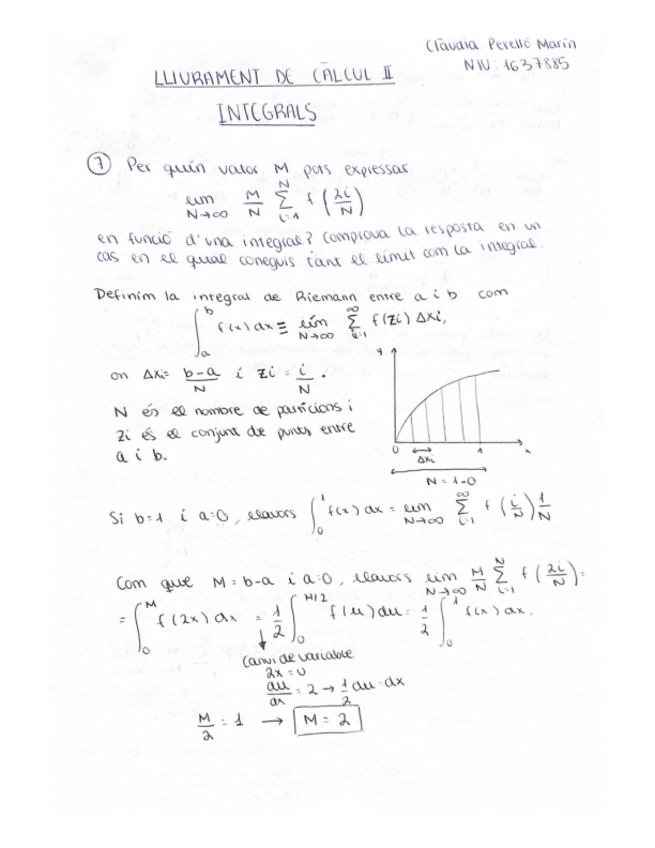 Clàudia Perelló Marín
NIU: 1637885
LLIURAMENT DE CÀLCUL II
INTEGRALS
① Per quin valor M pots expressar
lim N→∞ M/N Σ i=1 N f(2i/N)
en funció d'una integral? Comprova la resposta en un
cas en el qual coneguis tant el límit com la integral.
Definim la integral de Riemann entre a i b com
∫ a b f(x) dx ≡ lim N→∞ Σ i=1 ∞ f(zi) Δxi,
on Δxi = b-a/N i zi = i/N.
N és el nombre de particions i
zi és el conjunt de punts entre
a i b.
y
0 1 x
Δxi
N = 1-0
Si b=1 i a=0, llavors ∫ 0 1 f(x) dx = lim N→∞ Σ i=1 ∞ f(i/N) 1/N
Com que M = b-a i a=0, llavors lim N→∞ M/N Σ i=1 N f(2i/N) =
= ∫ 0 M f(2x) dx = 1/2 ∫ 0 M/2 f(u) du = 1/2 ∫ 0 1 f(x) dx.
Canvi de variable
2x = u
du/dx = 2 → 1/2 du = dx
M/2 = 1 → M = 2